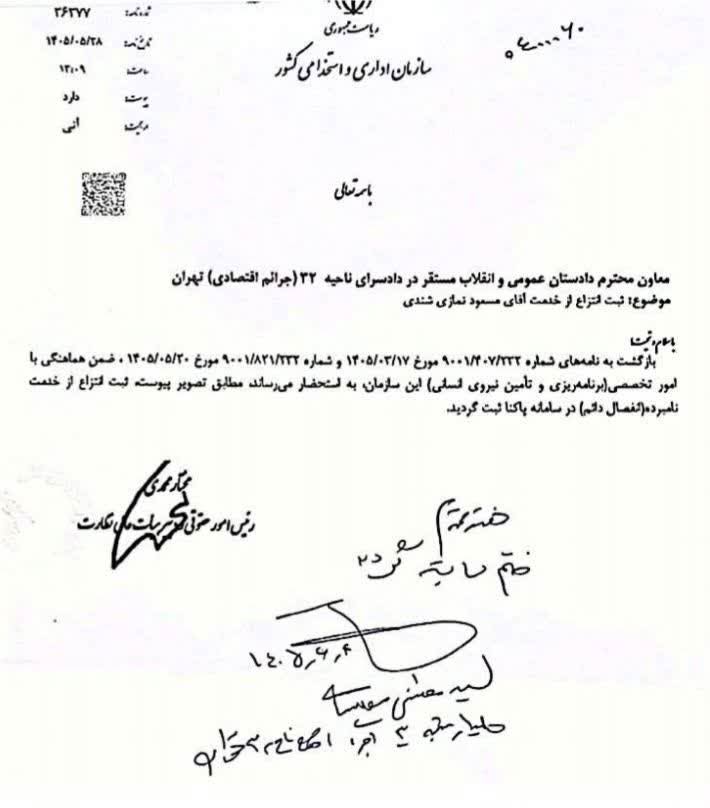 ریاست جمهوری
سازمان اداری و استخدامی کشور
شماره نامه: ۳۶۳۷۷
تاریخ نامه: ۱۴۰۵/۰۵/۲۸
ساعت: ۱۳:۰۹
پیوست: دارد
فوریت: آنی
باسمه تعالی
معاون محترم دادستان عمومی و انقلاب مستقر در دادسرای ناحیه ۳۲ (جرائم اقتصادی) تهران
موضوع: ثبت انتزاع از خدمت آقای مسعود نمازی شندی
با سلام و تحیت؛
بازگشت به نامه‌های شماره ۹۰۰۱/۴۰۷/۲۳۲ مورخ ۱۴۰۵/۰۳/۱۷ و شماره ۹۰۰۱/۸۲۱/۲۳۲ مورخ ۱۴۰۵/۰۵/۲۰ ، ضمن هماهنگی با
امور تخصصی(برنامه‌ریزی و تأمین نیروی انسانی) این سازمان، به استحضار می‌رساند، مطابق تصویر پیوست، ثبت انتزاع از خدمت
نامبرده(انفصال دائم) در سامانه پاکنا ثبت گردید.
رئیس امور حقوقی
ختم سابقه شود
۱۴۰۵٫۶٫۴
سید مجتبی